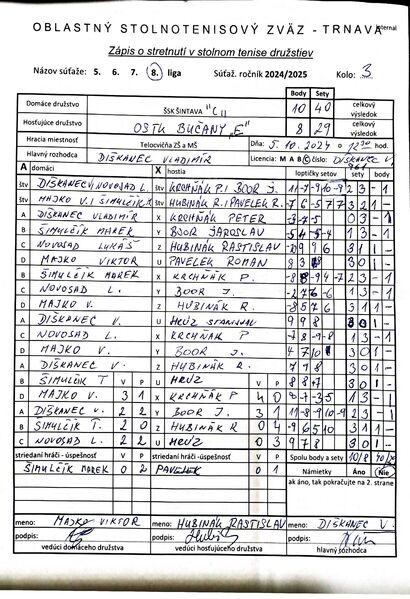 OBLASTNÝ STOLNOTENISOVÝ ZVÄZ - TRNAVA
Internal
Zápis o stretnutí v stolnom tenise družstiev
Názov súťaže: 5. 6. 7. 8. liga Súťaž. ročník 2024/2025 Kolo: 3
Body Sety
Domáce družstvo ŠSK ŠINTAVA "C" 10 40 celkový výsledok
Hosťujúce družstvo OSTK BUČANY "E" 8 29 celkový výsledok
Hracia miestnosť Telocvičňa ZŠ a MŠ Dňa: 5.10.2024 o hod
Hlavný rozhodca DIŠKANEC VLADIMÍR Licencia: M A B C číslo: DIŠKANEC V.
A domáci X hostia loptičky setov sety body
štv DIŠKANEC V. NOVOSAD L. štv KRCHŇÁK P. BOOR J. 11 -7 -9 10 -9 2 3 - 1
štv MAJKO V. ŠIMULČÍK štv HUBINÁK R. PAVELEK R. 3 2 1 -
A DIŠKANEC VLADIMÍR X KRCHŇÁK PETER -3 -7 -5 0 3 - 1
B ŠIMULČÍK MAREK Y BOOR JAROSLAV 1 3 - 1
C NOVOSAD LUKÁŠ Z HUBINÁK RASTISLAV 3 1 1 -
D MAJKO VIKTOR U PAVELEK ROMAN 3 0 1 -
B ŠIMULČÍK MAREK X KRCHŇÁK P. 2 3 - 1
C NOVOSAD L. Y BOOR J. -2 7 -6 -6 1 3 - 1
D MAJKO V. Z HUBINÁK R. -8 5 7 6 3 1 1 -
A DIŠKANEC V. U HEUZ 9 9 8 3 0 1 -
C NOVOSAD L. X KRCHŇÁK P 1 3 - 1
D MAJKO V. Y BOOR J. 4 7 10 3 0 1 -
A DIŠKANEC V. Z HUBINÁK R. 7 9 8 3 0 1 -
B ŠIMULČÍK T V P U HEUZ V P 8 8 7 3 0 1 -
D MAJKO V. 3 1 X KRCHŇÁK P 4 0 8 -7 -3 -5 1 3 - 1
A DIŠKANEC V. 2 2 Y BOOR J. 3 1 11 -8 -9 10 -9 2 3 - 1
B ŠIMULČÍK T. 2 0 Z HUBINÁK R 0 4 -9 6 5 10 3 1 1 -
C NOVOSAD L. 2 2 U HEUZ 0 3 9 7 8 3 0 1 -
striedaní hráči - úspešnosť V P striedaní hráči - úspešnosť V P Spolu body a sety 10/8 40/29
ŠIMULČÍK MAREK 0 2 PAVELEK 0 1 Námietky Áno Nie
ak áno, tak pokračujte na 2. strane
meno: MAJKO VIKTOR meno: HUBINÁK RASTISLAV meno: DIŠKANEC V.
podpis: podpis: podpis:
vedúci domáceho družstva vedúci hosťujúceho družstva hlavný rozhodca